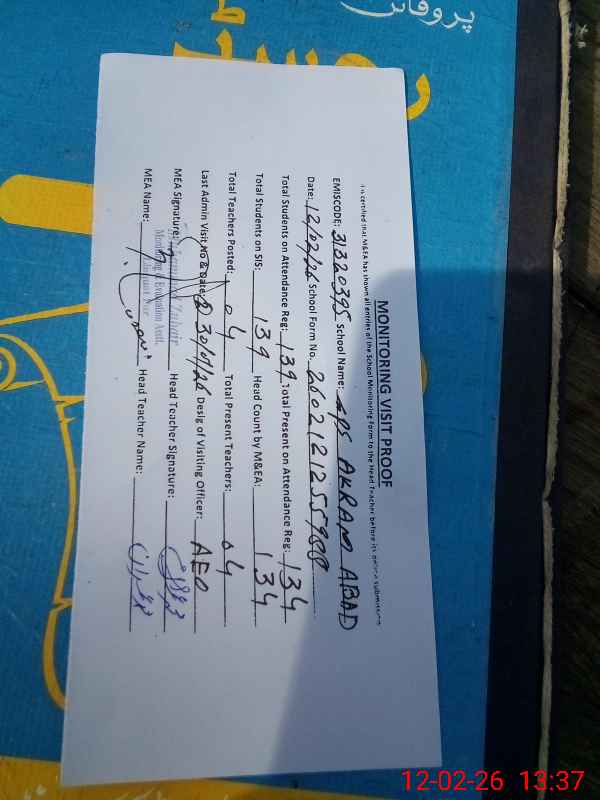 پروفائل
MONITORING VISIT PROOF
It is certified that M&EA has shown all entries of the School Monitoring Form to the Head Teacher before its online submission
EMISCODE: 31320395 School Name: GPS AKRAM ABAD
Date: 12/02/26 School Form No. 2602121255900
Total Students on Attendance Reg: 139 Total Present on Attendance Reg: 134
Total Students on SIS: 139 Head Count by M&EA: 134
Total Teachers Posted: 04 Total Present Teachers: 04
Last Admin Visit No & Date: 2 30/01/26 Desig of Visiting Officer: AEO
MEA Signature: Head Teacher Signature:
Monitoring & Evaluation Asstt.
MEA Name: Head Teacher Name:
12-02-26 13:37